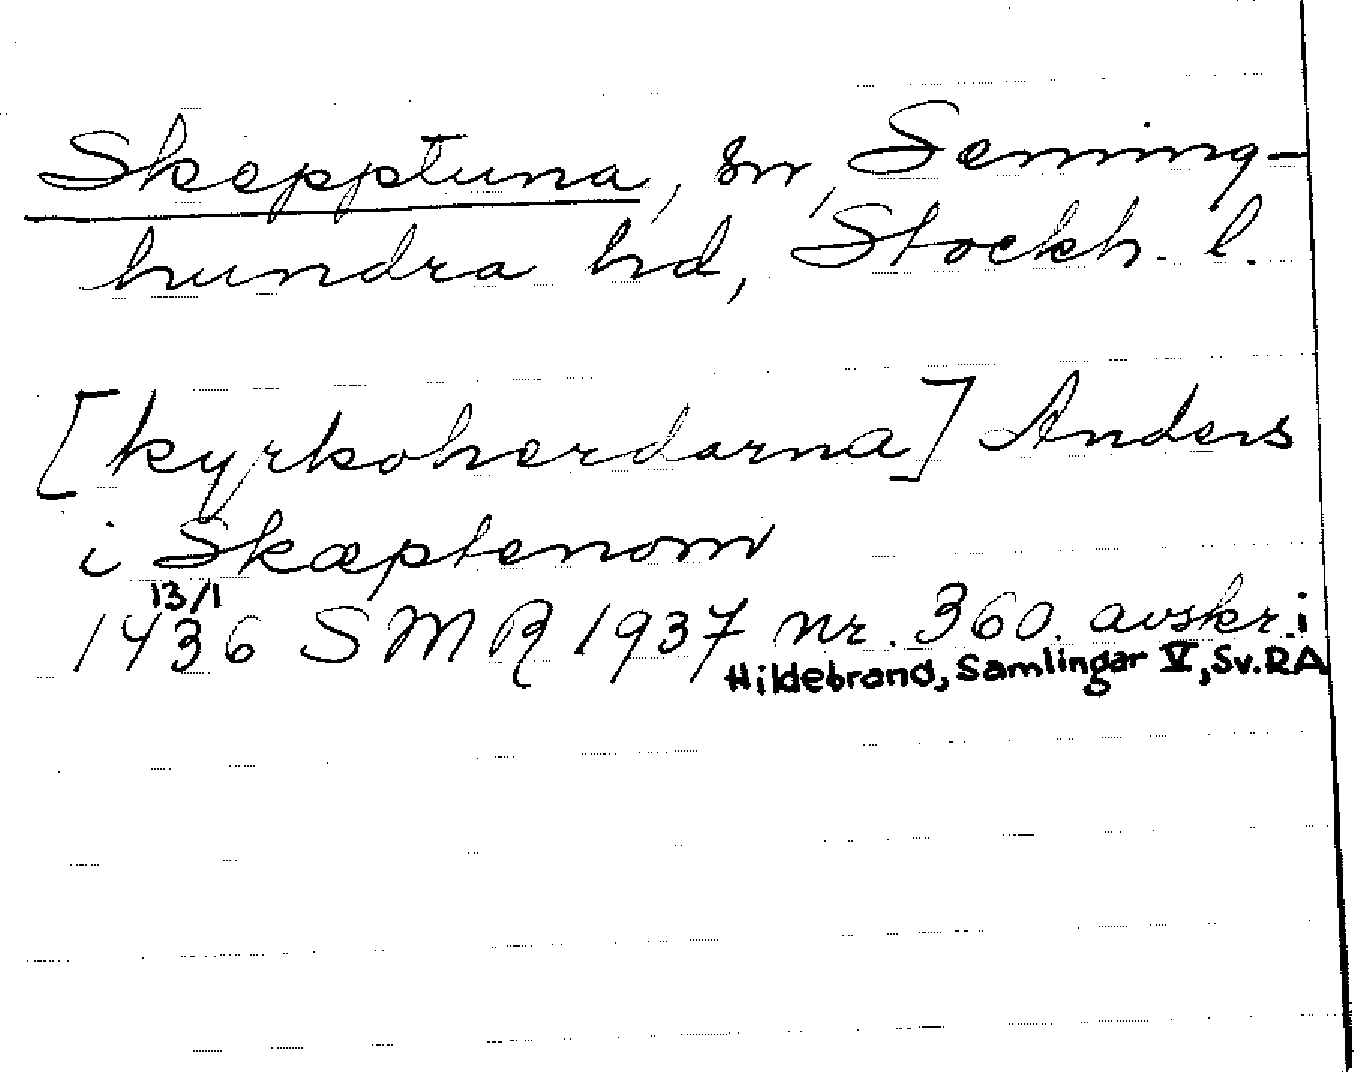 Skepptuna, sn, Seming-
hundra hd, Stockh. l.
[kyrkoherdarna] Anders
i Skæptenom
13/1
1436 SMR 1937 nr. 360. avskr. i
Hildebrand, Samlingar V, Sv. RA